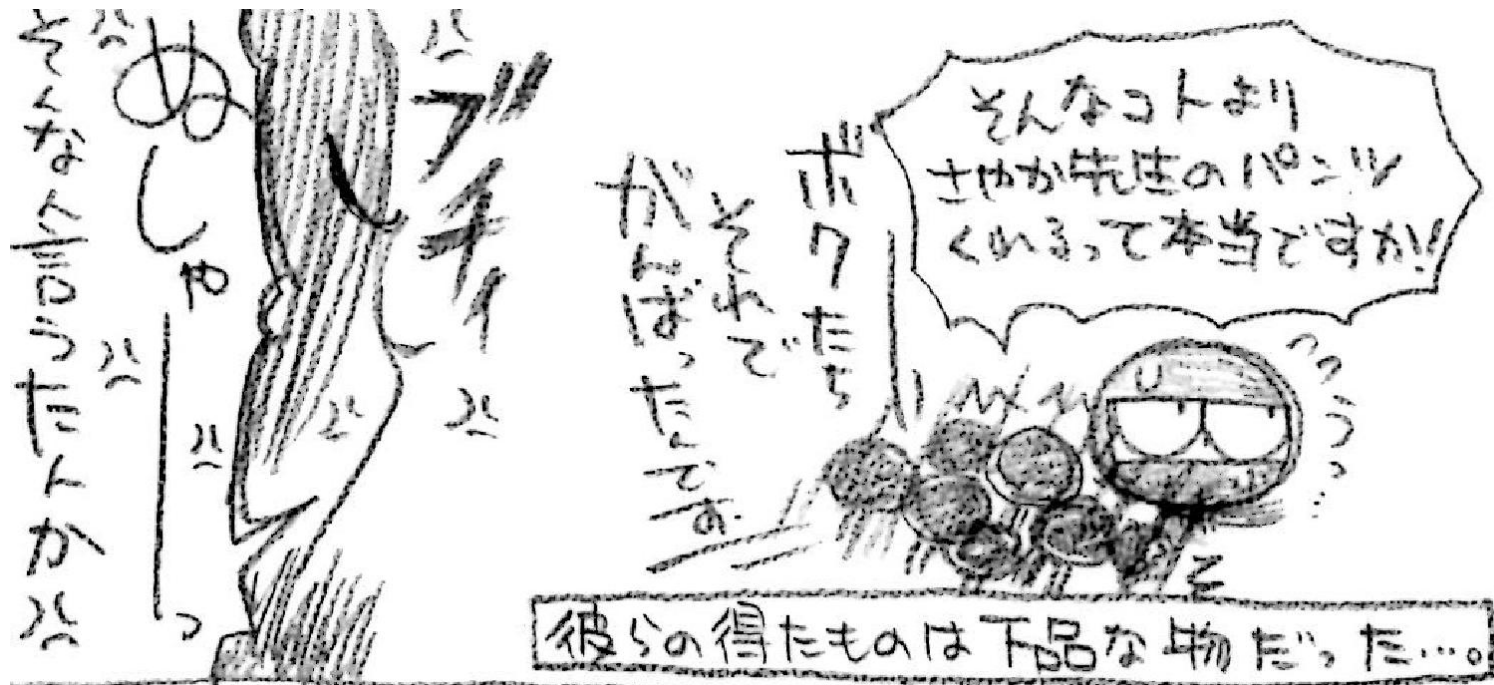 そんなコトより
さやか先生のパンツ
くれるって本当ですか!!
ボクたち
それで
がんばったんです
ブチィ
ぬしゃーっ
そんなん言うたんか
彼らの得たものは下品な物だった…。